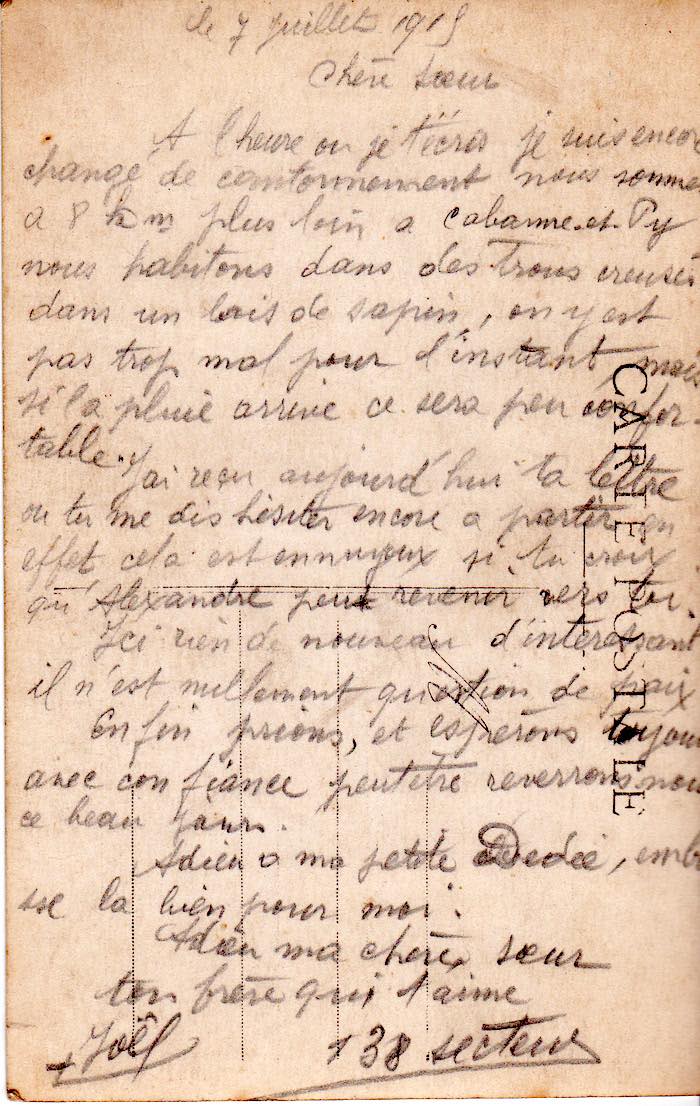 le 7 juillet 1915
Chère sœur
A l'heure ou je t'écris je suis encore
changé de cantonnement nous somme
a 8 km plus loin a Cabanne et Py
nous habitons dans des trous creusés
dans un bois de sapin, on y est
pas trop mal pour l'instant mais
si la pluie arrive ce sera peu confor-
table. J'ai reçu aujourd'hui ta lettre
ou tu me dis hésiter encore a partir en
effet cela est ennuyeux si tu crois
qu'Alexandre peut revenir vers toi.
Ici rien de nouveau d'intéressant
il n'est nullement question de paix
Enfin prions, et espérons toujour
avec confiance peutetre reverrons nou
ce beau jour.
Adieu a ma petite Dedée, embra
sse la bien pour moi.
Adieu ma chère sœur
ton frère qui t'aime
Joël 138 secteur
CARTE POSTALE